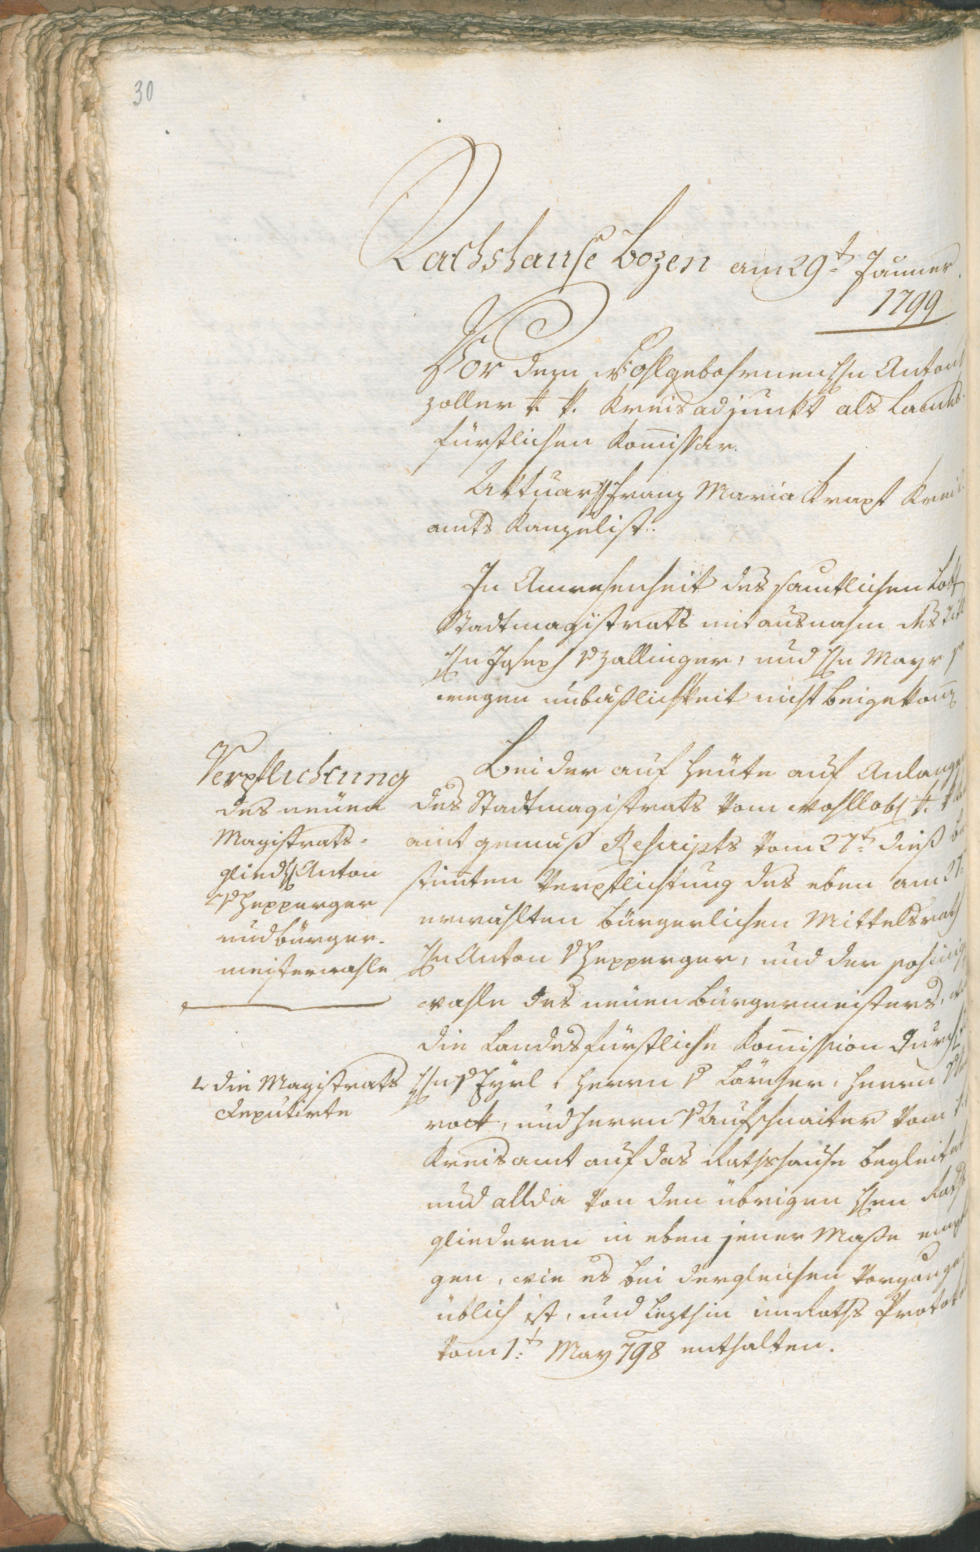 30
Rathshause Bozen am 29t Jänner
1799
Vor dem Wohlgebohrnen Hn Anton
Zoller k. k. Kreisadjunkt als Landes-
fürstlichen Kom̅issär.
Aktuar H Franz Maria Krapf Kreis
amts Kanzelist.
In Anwesenheit des sammtlichen
Stadtmagistrats mit ausnahm des
Hn Joseph v Zallinger, und Hn Mayr
wegen unbäßlichkeit nicht beigekom̅
Verpflichtung
des neüen
Magistrats-
glieds H Anton
v Hepperger
und bürger-
meisterwahle
Bei der auf heüte auf Anlangen
des Stadtmagistrats vom wohllobl k. k.
amt gemäß Rescripts vom 27t dieß be
stim̅ten Verpflichtung des eben am 21
erwählten bürgerlichen Mittelsrath
Hn Anton v Hepperger, und der
wahle des neüen Bürgermeisters,
die Landesfürstliche Kom̅ission durch
4 die Magistrats
Deputirte
Hn v Zyrl, Herrn v Lärcher, Herrn
rock, und Herrn v Aufschnaiter vom
Kreisamt auf das Rathshause begleitet
und allda von den übrigen Hen Raths
gliederen in eben jener Maße empf
gen, wie es bei dergleichen Vorgange
üblich ist, und lezthin im Raths Protok
vom 1t May 798 enthalten.